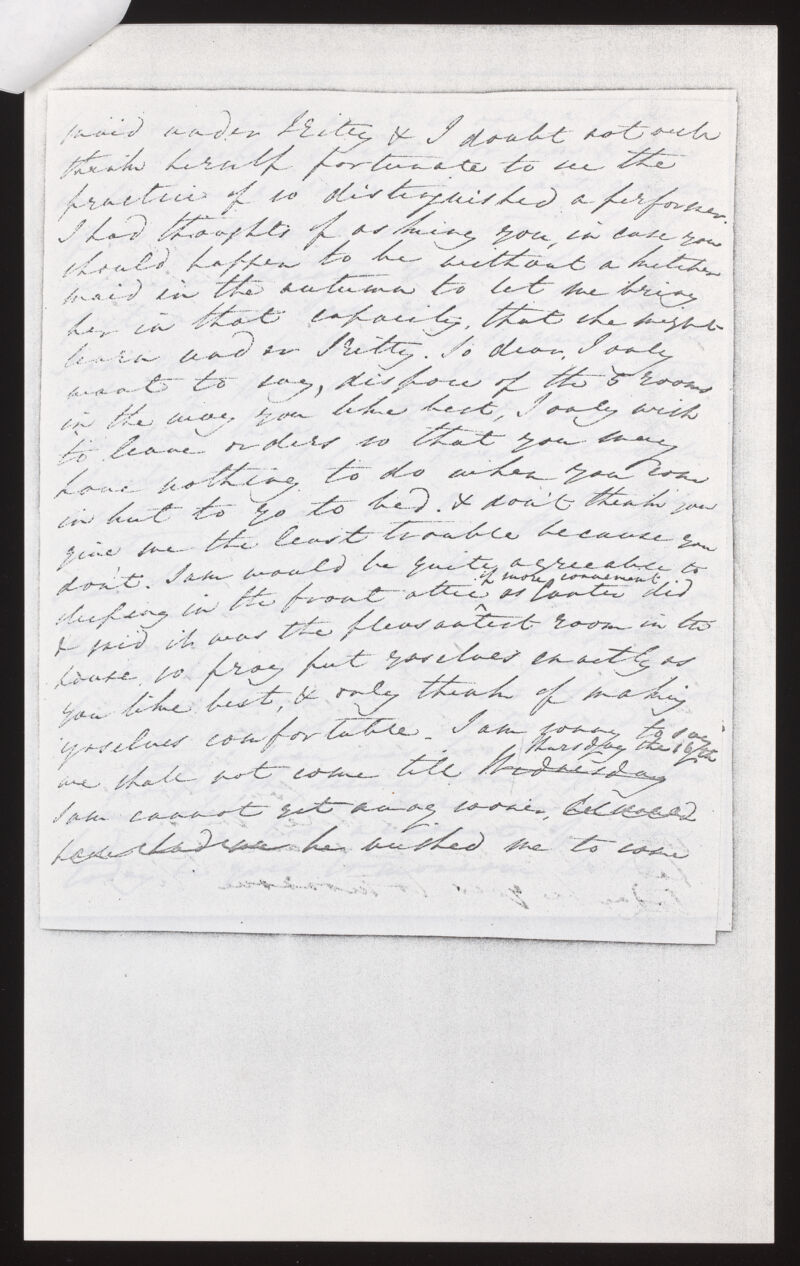 maid under Kitty & I doubt not wd
think herself fortunate to see the
practice of so distinguished a performer.
I had thoughts of asking you, in case you
should happen to be without a kitchen
maid in the autumn to let me bring
her in that capacity, that she might
learn under Kitty. So dear, I only
want to say, dispose of the 5 rooms
in the way you like best, I only wish
to leave orders so that you may
have nothing to do when you come
in but to go to bed. & don't think you
give me the least trouble because you
don't. Sam would be quite agreeable to
sleeping in the front attic as did
& more convenient
& said it was the pleasantest room in the
house, so pray put yrselves exactly as
you like best, & only think of making
yrselves comfortable. I am sorry to say
we shall not come till Wednesday
Thursday the 16th
Sam cannot get away sooner,
he wished me to come